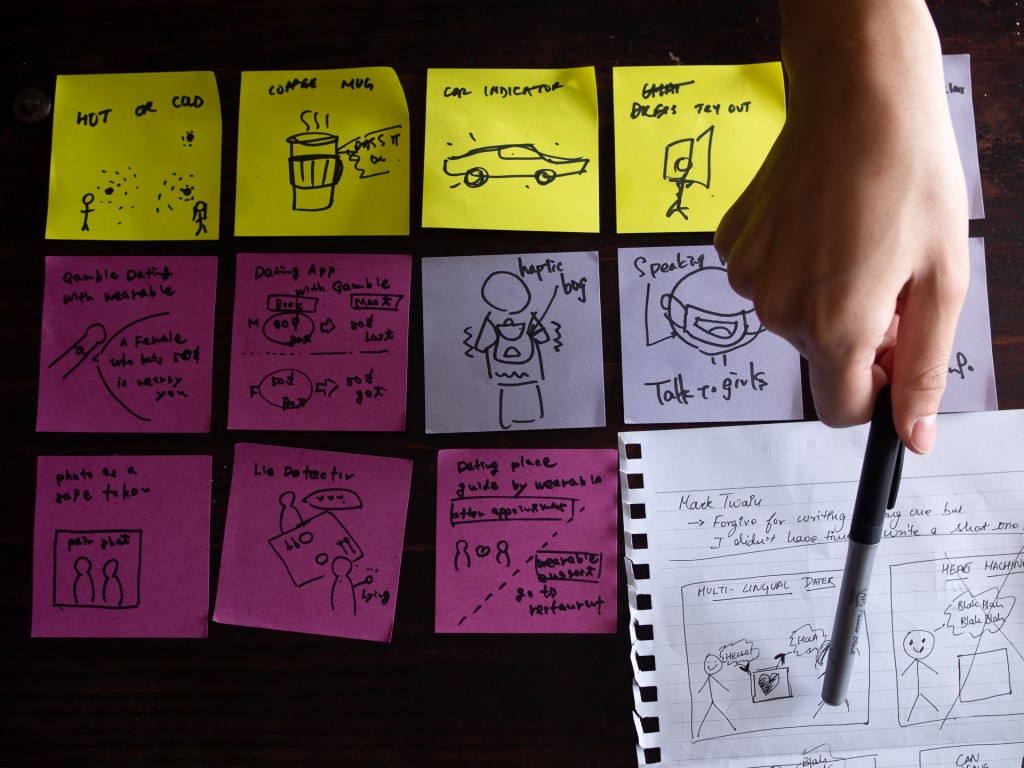 HOT OR COLD
COFFEE MUG
PASS IT
ON
CAR INDICATOR
DRESS TRY OUT
Gamble Dating
with wearable
A Female
who bets 50$
is nearby
you
Dating App
with Gamble
Book
Meet
M
80$
Bet
80$
Lost
F
50$
Bet
50$
got
haptic
bag
Speaking
Talk to girls
photo as a
safe token
pair photo
Lie Detector
xxx
lying
Dating place
guide by wearable
after appointment
wearable
suggest
go to
restaurant
Mark Twain
→ Forgive for writing long one but
I didn't have time write a short one
MULTI-LINGUAL DATER
HELLO!
HOLA
HEART MACHINE
Blah Blah
Blah Blah
Blah
CAN